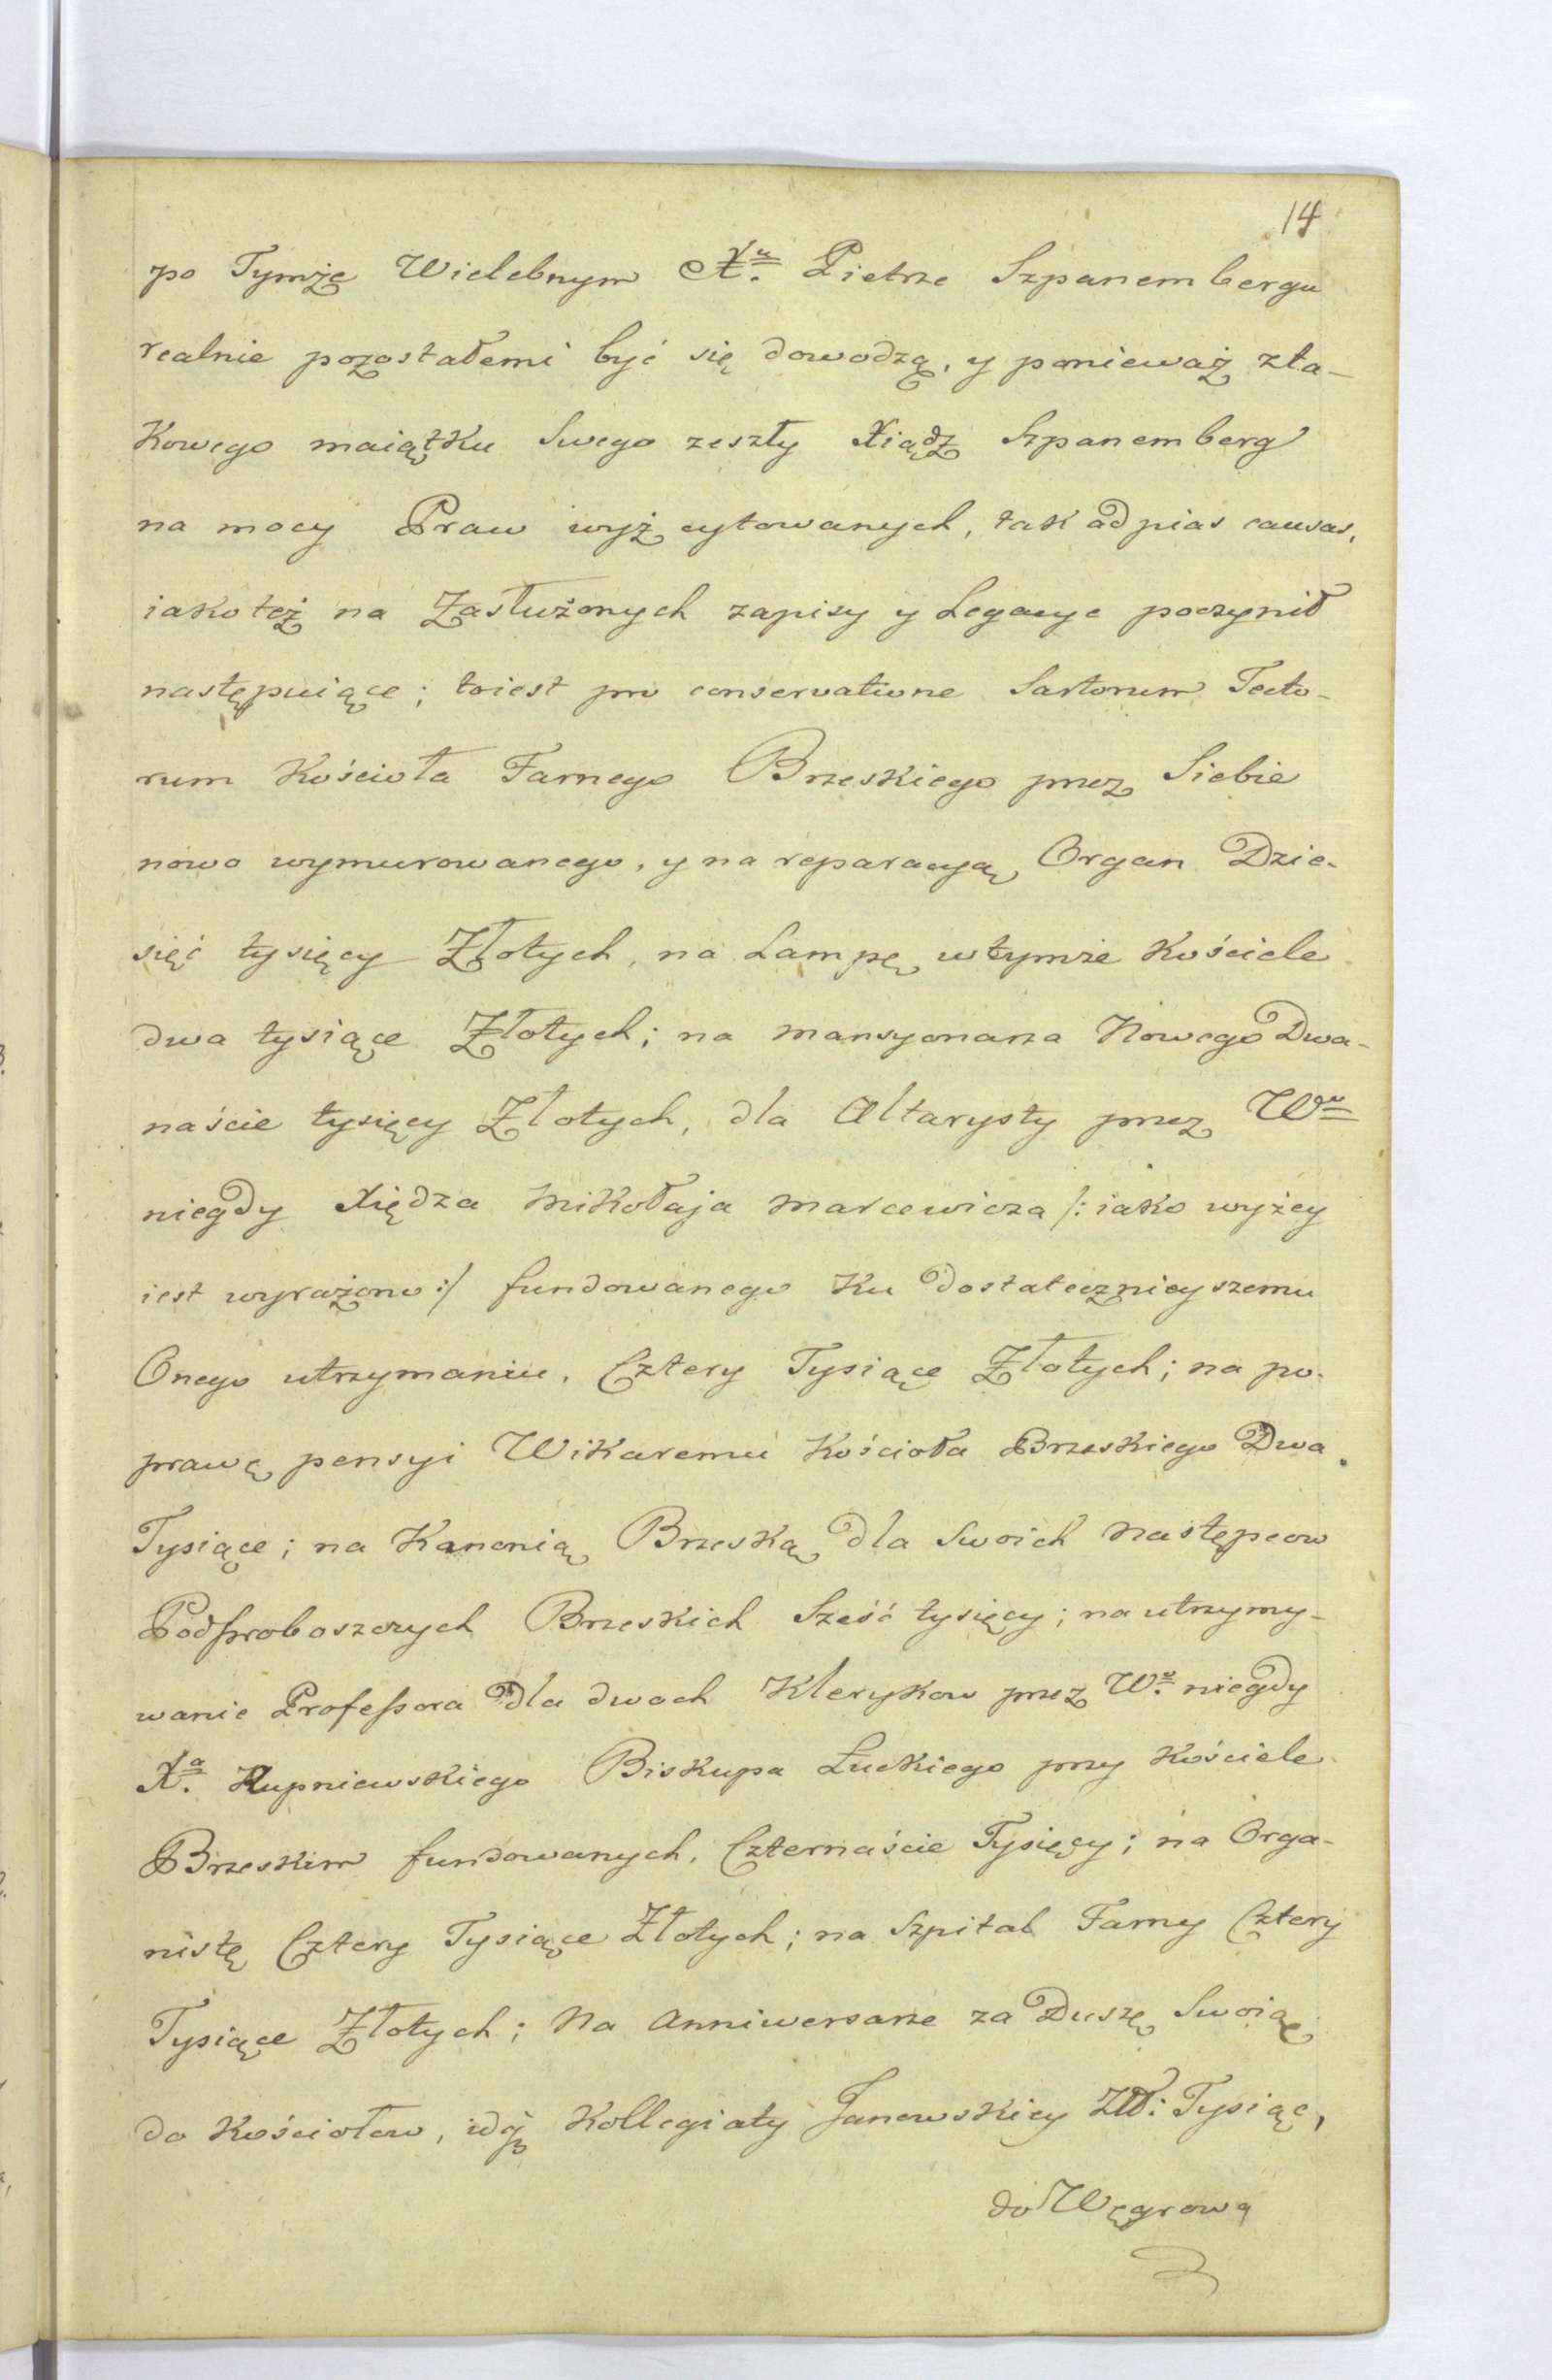 14
po Tymże Wielebnym Xu. Pietrze Szpanembergu
realnie pozostałemi być się dowodzą, y ponieważ zta-
kowego maiątku Swego zeszły Xiądz Szpanemberg
na mocy Praw wyż cytowanych, tak ad pias causas,
iako też na Zasłużonych zapisy y Legacye poczynił
następuiące; toiest pro conservatione Sartorum Tecto-
rum Kościoła Farnego Brzeskiego przez Siebie
nowo wymurowanego, y na reparacyą Organ Dzie-
sięć tysięcy Złotych, na Lampę wtymże Kościele
dwa tysiące Złotych; na mansyonarza Nowego Dwa-
naście tysięcy Złotych, dla Altarysty przez Wo
niegdy Xiędza Mikołaja Marcewicza /: iako wyżey
iest wyrażono :/ fundowanego Ku dostatecznieyszemu
Onego utrzymaniu, Cztery Tysiące Złotych; na po-
prawę pensyi Wikaremu Kościoła Brzeskiego Dwa
Tysiące; na Kanonią Brzeską dla Swoich Następcow
Podproboszczych Brzeskich Sześć tysięcy; na utrzymy-
wanie Professora dla dwoch Klerykow przez Wo. niegdy
Xa. Rupniewskiego Biskupa Łuckiego przy Kościele
Brzeskim fundowanych, Czternaście Tysięcy; na Orga-
nistę Cztery Tysiące Złotych; na Szpital Farny Cztery
Tysiące Złotych; Na Anniwersarze za Duszę Swoią
do Kościołow, idq Kollegiaty Janowskiey Złł: Tysiąc,
do Węgrowa